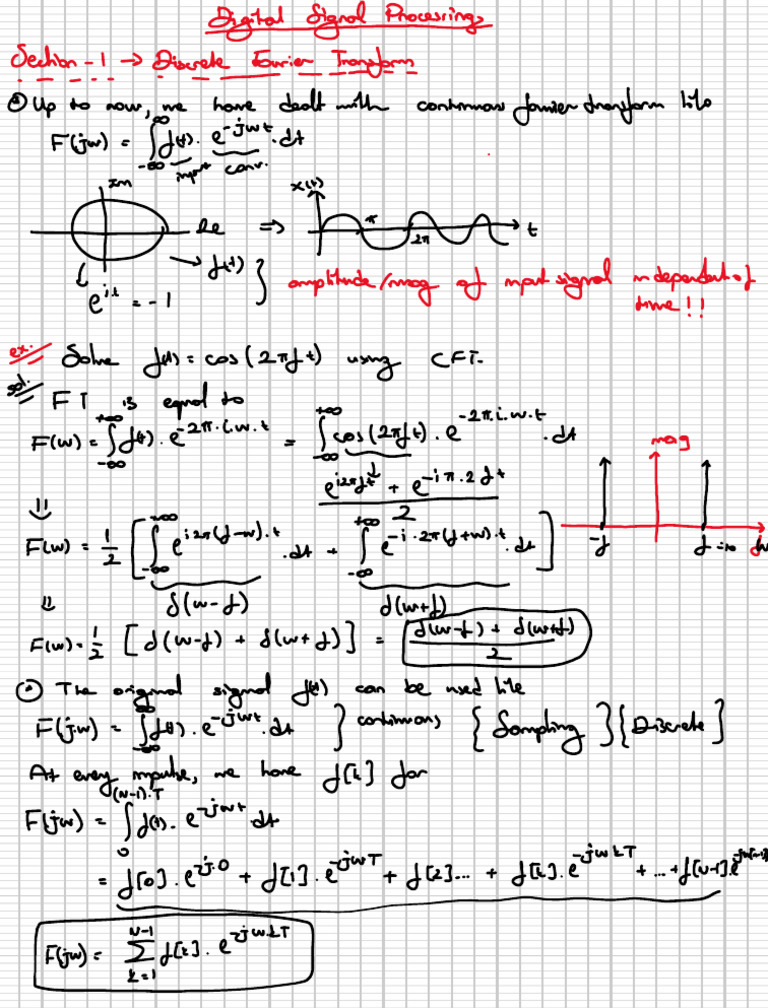 Digital Signal Processing
Section-1 → Discrete Fourier Transform
Up to now, we have dealt with continuous fourier transform like
F(jw) = ∫_{-∞}^{∞} f(t). e^{-jwt} .dt
input conv.
Im
Re ⇒ x(t) π 2π t
→ f(t)
e^{iπ} = -1
amplitude/mag of input signal independent of
time!!
ex. Solve f(t) = cos(2πft) using CFT.
sol. FT is equal to
F(w) = ∫_{-∞}^{+∞} f(t). e^{-2π.i.w.t} = ∫_{-∞}^{+∞} cos(2πft). e^{-2π.i.w.t} .dt
mag
(e^{i2πft} + e^{-iπ.2ft})/2
⇓
F(w) = 1/2 [ ∫_{-∞}^{+∞} e^{i2π(f-w).t} .dt + ∫_{-∞}^{+∞} e^{-i.2π(f+w).t} .dt ]
-f f
δ(w-f) δ(w+f)
⇓
F(w) = 1/2 [δ(w-f) + δ(w+f)] = (δ(w-f) + δ(w+f))/2
The original signal f(t) can be used like
F(jw) = ∫_{-∞}^{∞} f(t). e^{-jwt} .dt } continuous {Sampling} {Discrete}
At every impulse, we have f[k] for
F(jw) = ∫_{0}^{(N-1).T} f(t). e^{-jwt} dt
= f[0]. e^{-j.0} + f[1]. e^{-jwT} + f[2]... + f[k]. e^{-jwkT} + ... + f[N-1] e^{-jw(N-1)
F(jw) = ∑_{k=1}^{N-1} f[k]. e^{-jwkT}